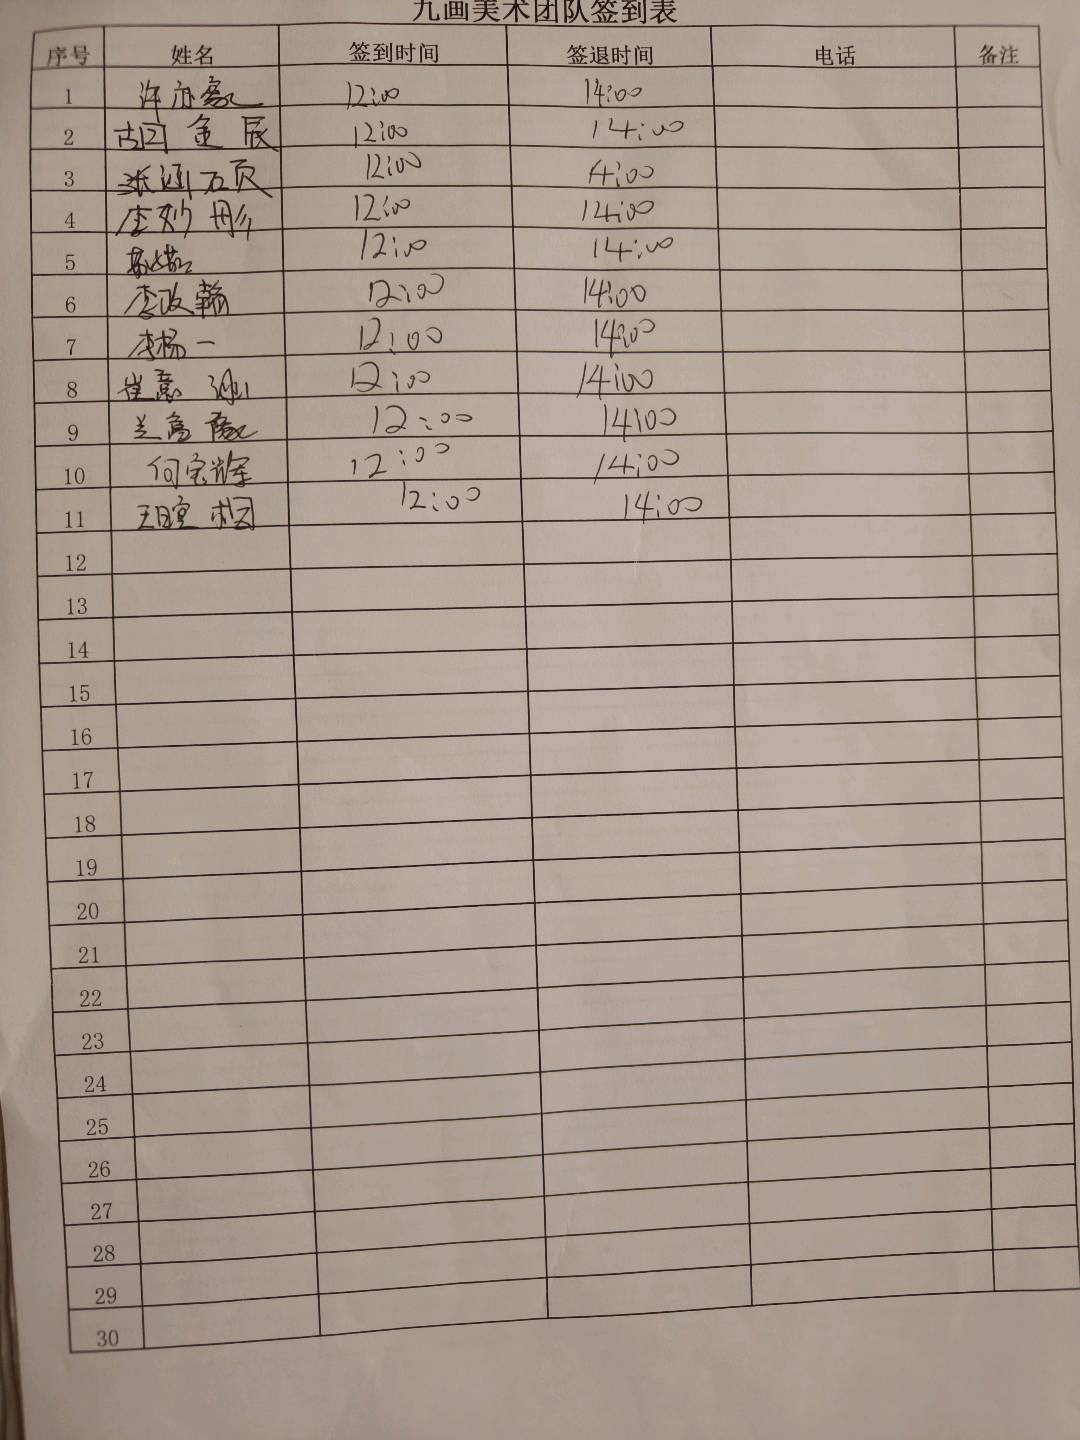 九画美术团队签到表
序号 姓名 签到时间 签退时间 电话 备注
1 许亦 12:00 14:00
2 金辰 12:00 14:00
3 张涵硕 12:00 14:00
4 李妙彤 12:00 14:00
5 12:00 14:00
6 李政翰 12:00 14:00
7 李杨一 12:00 14:00
8 崔意涵 12:00 14:00
9 12:00 14:00
10 何宝辉 12:00 14:00
11 王 12:00 14:00
12
13
14
15
16
17
18
19
20
21
22
23
24
25
26
27
28
29
30